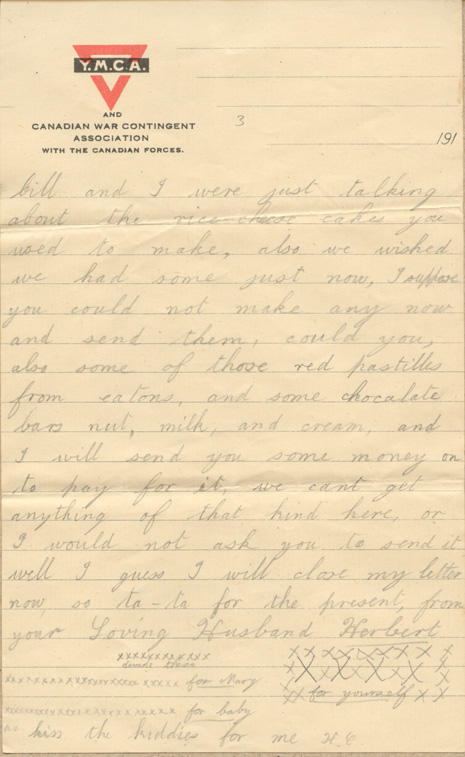 Y.M.C.A.
AND
CANADIAN WAR CONTINGENT
ASSOCIATION
WITH THE CANADIAN FORCES.
3
191
bill and I were just talking
about the rice cheese cakes you
used to make, also we wished
we had some just now, I suppose
you could not make any now
and send them, could you,
also some of those red pastilles
from eatons, and some chocalate
bars nut, milk, and cream, and
I will send you some money on
to pay for it, we cant get
anything of that kind here, or
I would not ask you to send it
well I guess I will close my letter
now, so ta-ta for the present, from
your Loving Husband Herbert
xxxxxxxxxxx xxxxxxxx
these xxxxxxx
xxxxxxxxxxxxxx for Mary xx for yourself xx
xxxxxxxxxxxxxx for baby
kiss the kiddies for me H.C.